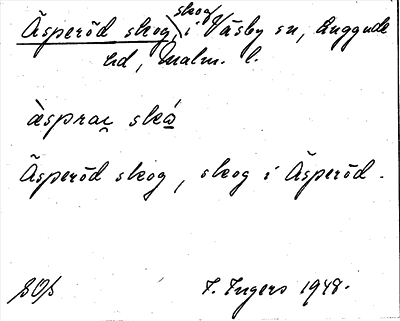 Äsperöd skog, skog i Väsby sn, Luggude
hd, Malm. l.
äsprae skå
Äsperöd skog, skog i Äsperöd.
I. Ingers 1948.